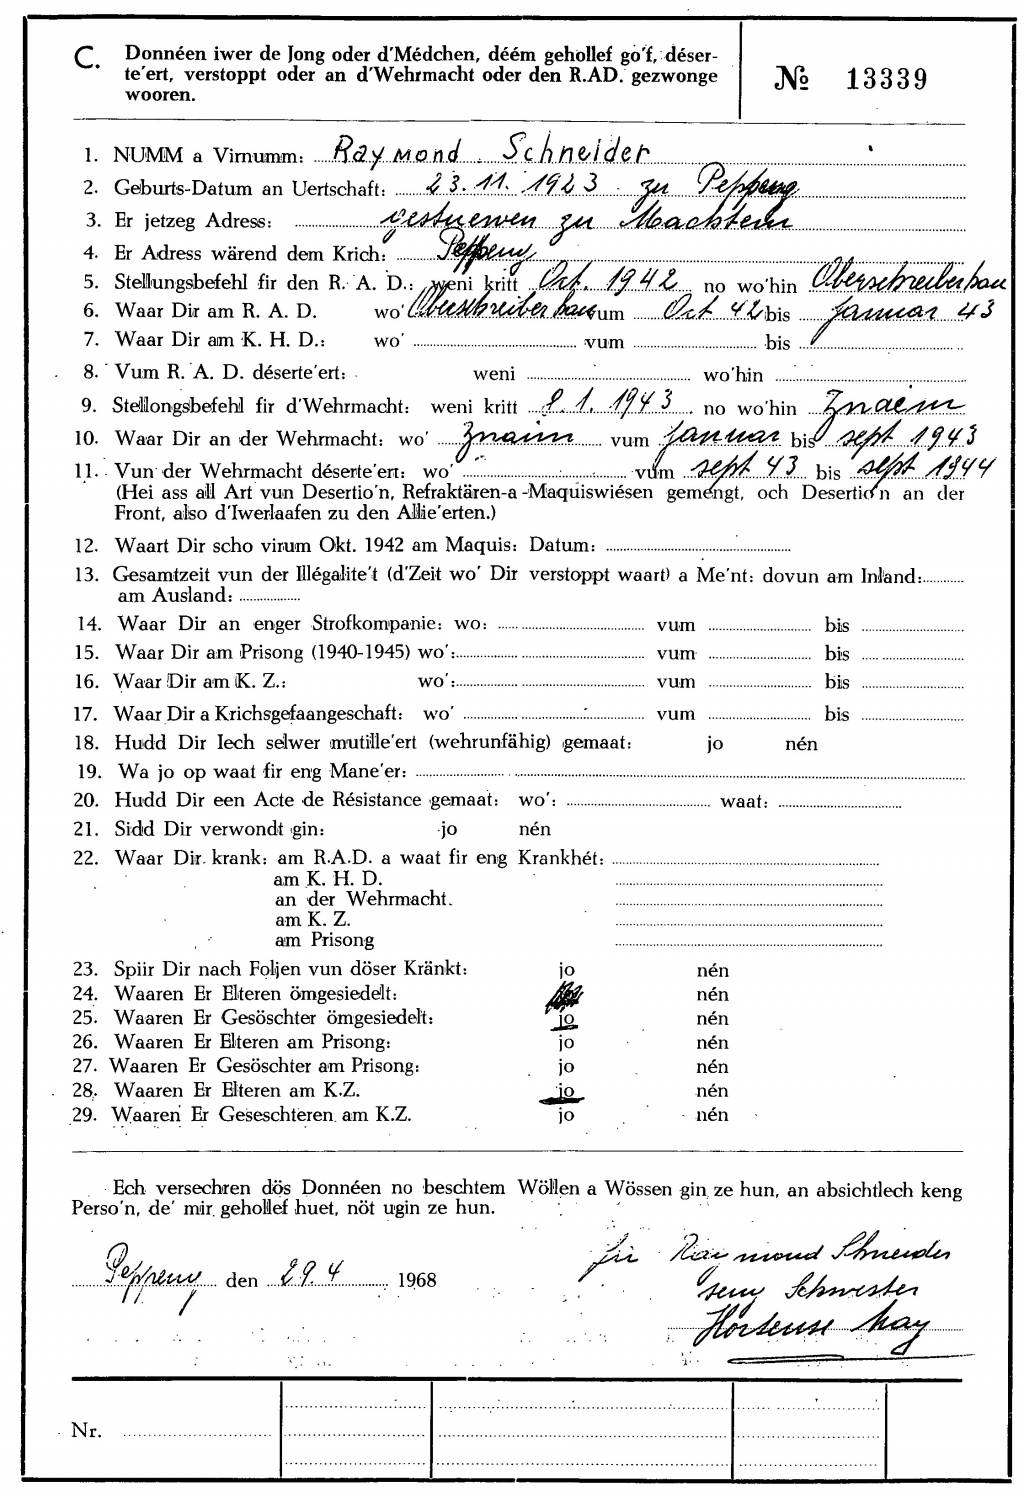 C. Donnéen iwer de Jong oder d'Médchen, déém gehollef go'f, déser-
te'ert, verstoppt oder an d'Wehrmacht oder den R.AD. gezwonge
wooren.
№ 13339
1. NUMM a Virnumm: Raymond Schneider
2. Geburts-Datum an Uertschaft: 23.11.1923 zu Peppeng
3. Er jetzeg Adress: gestuerwen zu Machtem
4. Er Adress wärend dem Krich: Peppeng
5. Stellungsbefehl fir den R. A. D.: weni kritt Oct. 1942 no wo'hin Oberschreiberhau
6. Waar Dir am R. A. D. wo' Oberschreiberhau vum Oct 42 bis Januar 43
7. Waar Dir am K. H. D.: wo' vum bis
8. Vum R. A. D. déserte'ert: weni wo'hin
9. Stellongsbefehl fir d'Wehrmacht: weni kritt 9.1.1943 no wo'hin Znaem
10. Waar Dir an der Wehrmacht: wo' Znaim vum Januar bis sept 1943
11. Vun der Wehrmacht déserte'ert: wo' vum sept 43 bis sept 1944
(Hei ass all Art vun Desertio'n, Refraktären-a-Maquiswiésen gemengt, och Desertio'n an der
Front, also d'Iwerlaafen zu den Allie'erten.)
12. Waart Dir scho virum Okt. 1942 am Maquis: Datum:
13. Gesamtzeit vun der Illégalite't (d'Zeit wo' Dir verstoppt waart) a Me'nt: dovun am Inland:
am Ausland:
14. Waar Dir an enger Strofkompanie: wo: vum bis
15. Waar Dir am Prisong (1940-1945) wo': vum bis
16. Waar Dir am K. Z.: wo': vum bis
17. Waar Dir a Krichsgefaangeschaft: wo' vum bis
18. Hudd Dir Iech selwer mutille'ert (wehrunfähig) gemaat: jo nén
19. Wa jo op waat fir eng Mane'er:
20. Hudd Dir een Acte de Résistance gemaat: wo': waat:
21. Sidd Dir verwondt gin: jo nén
22. Waar Dir krank: am R.A.D. a waat fir eng Krankhét:
am K. H. D.
an der Wehrmacht.
am K. Z.
am Prisong
23. Spiir Dir nach Foljen vun döser Kränkt: jo nén
24. Waaren Er Elteren ömgesiedelt: nén
25. Waaren Er Gesöschter ömgesiedelt: jo nén
26. Waaren Er Elteren am Prisong: jo nén
27. Waaren Er Gesöschter am Prisong: jo nén
28. Waaren Er Elteren am K.Z. jo nén
29. Waaren Er Geseschteren am K.Z. jo nén
Ech versechren dös Donnéen no beschtem Wöllen a Wössen gin ze hun, an absichtlech keng
Perso'n, de' mir gehollef huet, nöt ugin ze hun.
Peppeng den 29.4 1968
fir Raymond Schneider
seng Schwester
Hortense May
Nr.